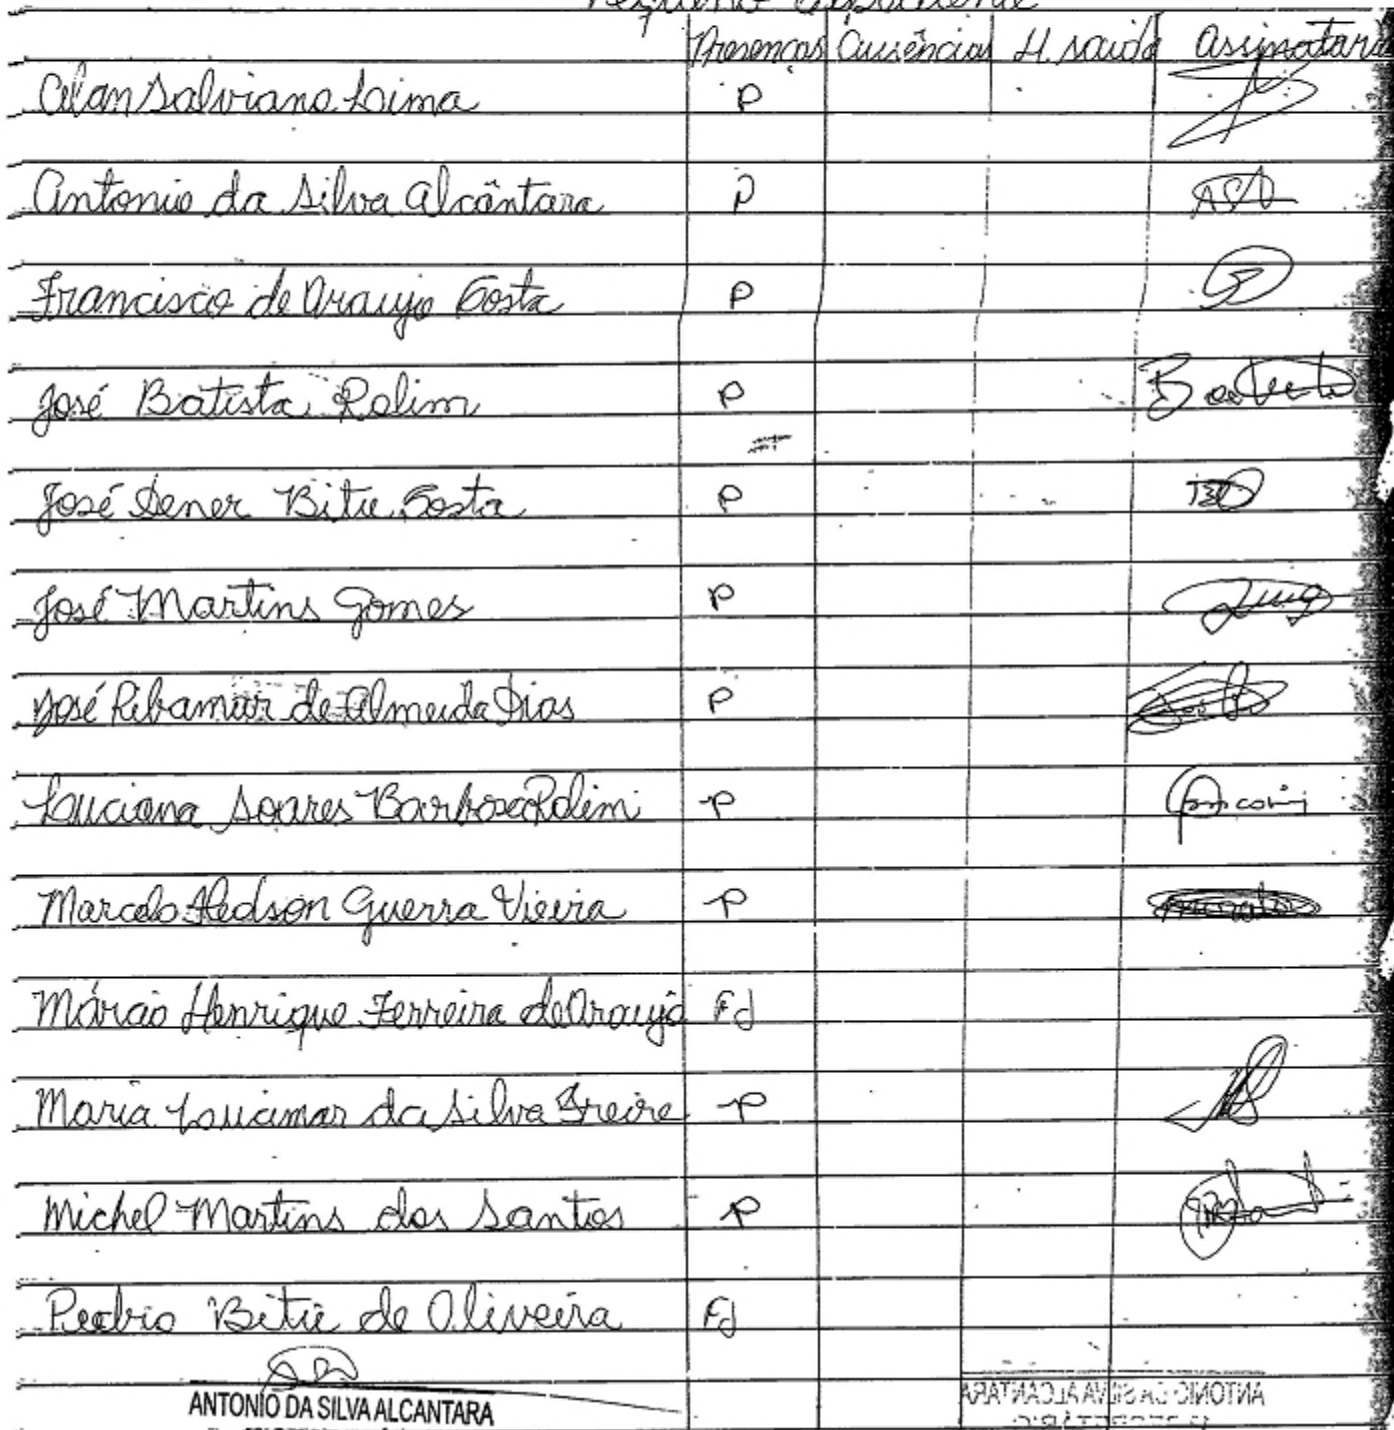 Pequeno Expediente
Presenças Ausências H. saida Assinatura
Alan Salviano Lima P
Antonio da Silva Alcântara P
Francisco de Araujo Costa P
José Batista Rolim P
José Dener Bitu Costa P
José Martins Gomes P
José Ribamar de Almeida Dias P
Luciana Soares Barbosa Rolim P
Marcelo Hedson Guerra Vieira P
Márcio Henrique Ferreira de Araujo FJ
Maria Lucimar da Silva Freire P
Michel Martins dos Santos P
Pedro Bitu de Oliveira FJ
ANTONIO DA SILVA ALCANTARA